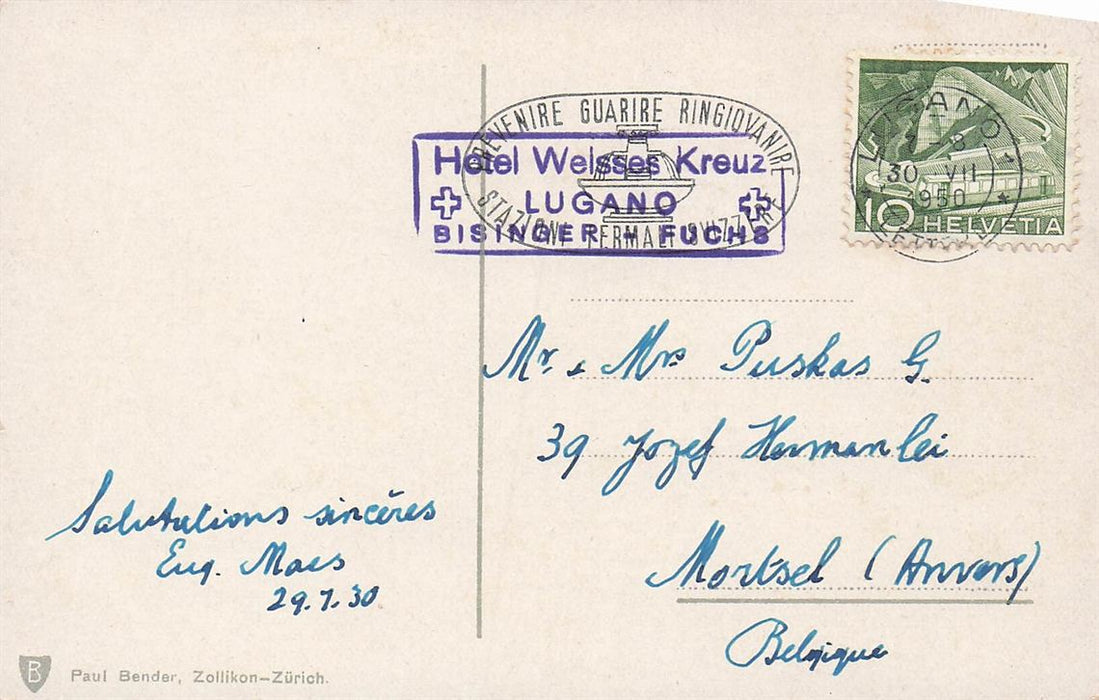 PREVENIRE GUARIRE RINGIOVANIRE
STAZIONI TERMALI SVIZZERE
Hotel Weisses Kreuz
LUGANO
BISINGER - FUCHS
LUGANO 1
30. VII
1950
10 HELVETIA
Mr. & Mrs Puskas G.
39 Jozef Hermanlei
Mortsel (Anvers)
Belgique
Salutations sincères
Eug. Maes
29.7.30
B Paul Bender, Zollikon-Zürich.